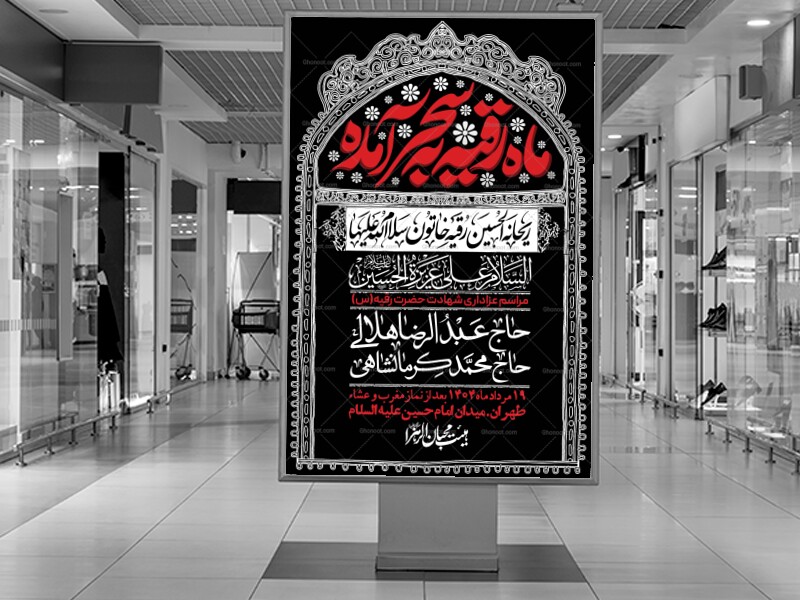 ماه رقیه به سحر آمده
ریحانة الحسین رقیه خاتون سلام الله علیها
السلام علی عزیزة الحسین
مراسم عزاداری شهادت حضرت رقیه(س)
حاج عبدالرضا هلالی
حاج محمد کرمانشاهی
۱۹ مرداد ماه ۱۴۰۴ بعد از نماز مغرب و عشاء
طهران، میدان امام حسین علیه السلام
هیئت محبان الزهرا
Ghonoot.com